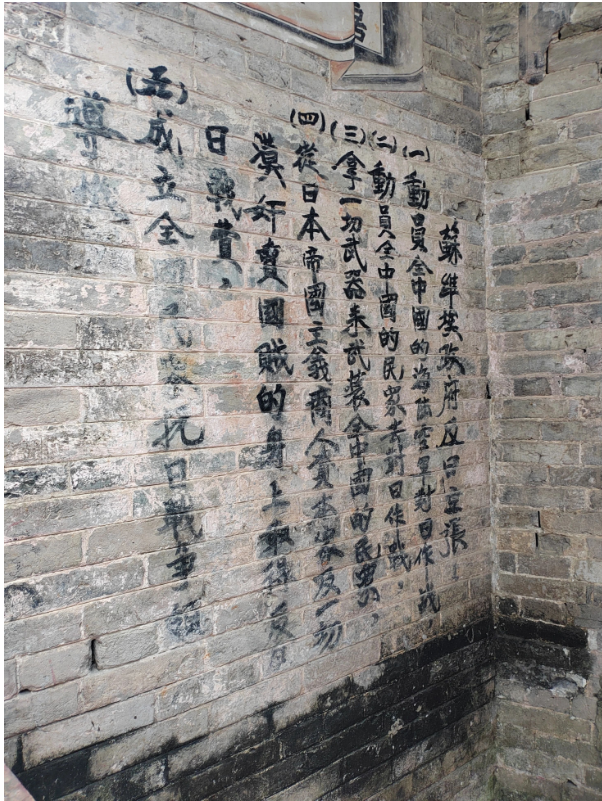 蘇維埃政府反日主張
(一)動員全中國的海陸空軍對日作戰,
(二)動員全中國的民衆去對日作戰,
(三)拿一切武器來武裝全中國的民衆,
(四)從日本帝國主義商人買本家及一切
漢奸賣國賊的身上取得反日
日戰費,
(五)成立全 民衆抗日戰爭領
導